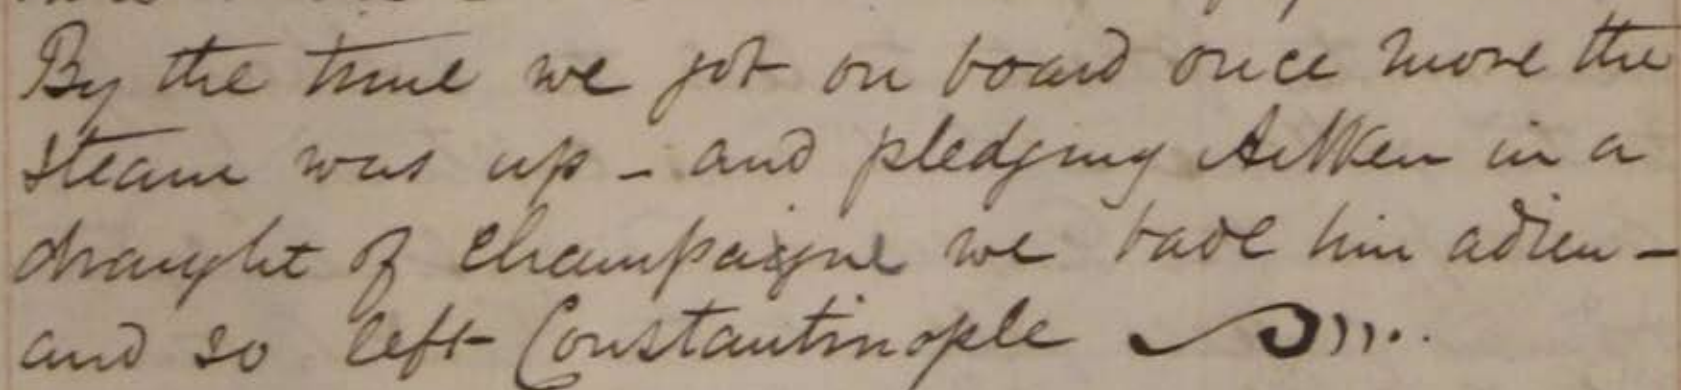 By the time we got on board once more the
steam was up - and pledging Aitken in a
draught of champaigne we bade him adieu -
and so left Constantinople